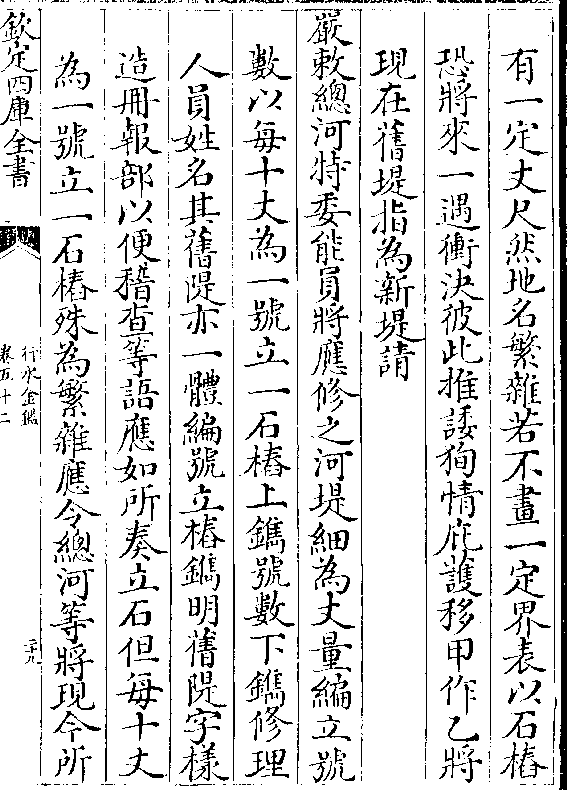 有一定丈尺然地名繁雜若不畫一定界表以石樁
恐將來一遇衝決彼此推諉狥情庇護移甲作乙將
現在舊堤指為新堤請
嚴敕總河特委能員將應修之河堤細為丈量編立號
數以每十丈為一號立一石樁上鐫號數下鐫修理
人員姓名其舊隄亦一體編號立樁鐫明舊隄字樣
造冊報部以便稽查等語應如所奏立石但每十丈
為一號立一石樁殊為繁雜應令總河等將現今所
欽定四庫全書
行水金鑑
卷五十二
二十九